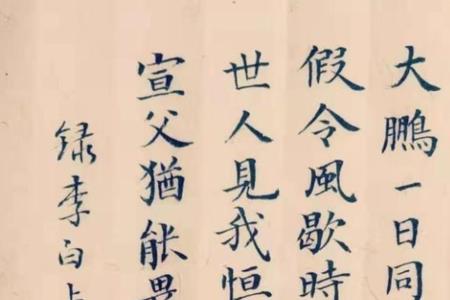 大鵬一日同
假令風歇時
世人見我恒
宣父猶能畏
錄李白上